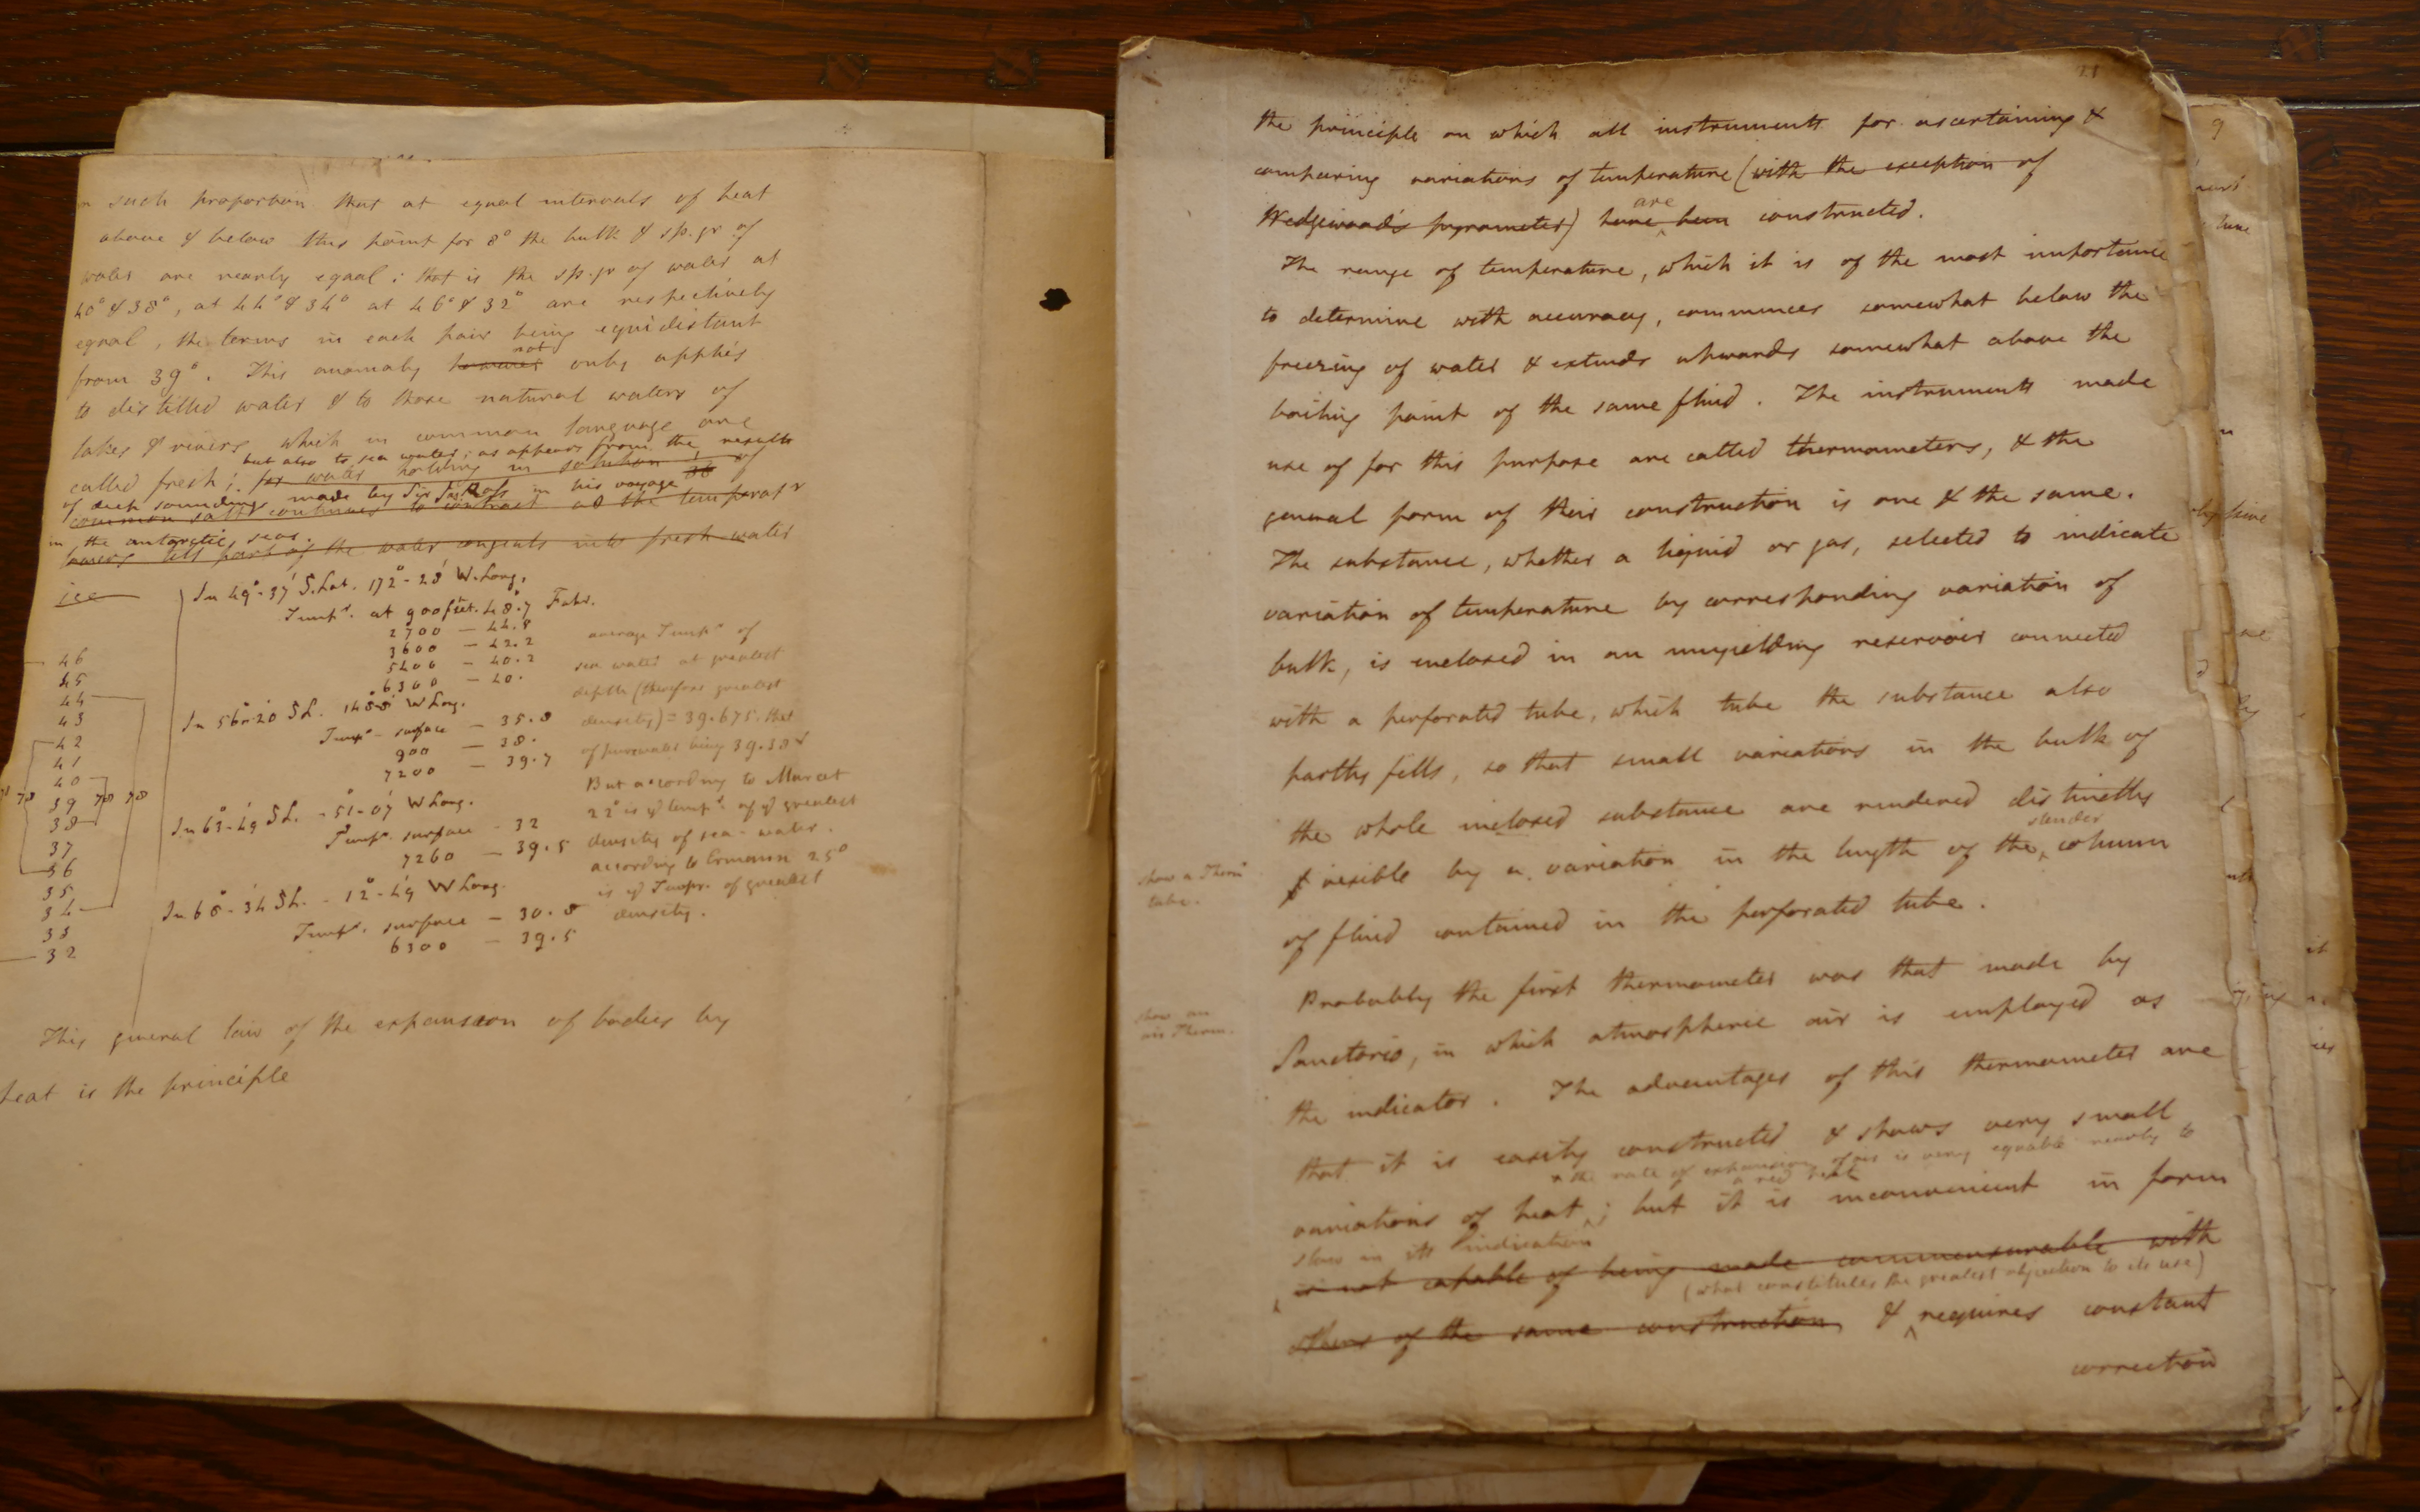 in such proportion that at equal intervals of heat
above & below this point for 8° the bulk & sp. gr of
water are nearly equal; that is the sp. gr of water at
40° & 38°, at 44° & 34° at 46° & 32° are respectively
equal, the terms in each pair being equidistant
not
from 39°. This anomaly however only applies
to distilled water & to those natural waters of
lakes & rivers which in common language are
but also to sea water; as appears from the results
called fresh; for water holding in solution of
of deep soundings made by Sir Jas Ross in his voyage
common salt continues to contract as the temperatr
in the antarctic seas.
lowers till part of the water congeals into fresh water
ice
In 49°-37' S. Lat. 172°-28' W. Long.
Tempr. at 900 feet. 48°.7 Fahr.
2700 — 44.8
3600 — 42.2
5400 — 40.2
6300 — 40.
In 56°-20 SL. 148°-8' W Long.
Tempr - surface — 35.8
900 — 38.
7200 — 39.7
In 63°-49 SL. - 51°-07' W Long.
Tempr. surface - 32
7260 — 39.5
In 68°-34' SL. - 12°-49' W Long.
Tempr. surface — 30.8
6300 — 39.5
average Tempr of
sea water at greatest
depth (therefore greatest
density) = 39.675. that
of pure water being 39.38
But according to Marcet
22° is ye tempr. of ye greatest
density of sea-water.
according to Ermann 25°
is ye Tempr. of greatest
density.
46
45
44
43
42
41
40
78 39 78 78
38
37
36
35
34
33
32
This general law of the expansion of bodies by
heat is the principle
21
the principle on which all instruments for ascertaining &
comparing variations of temperature (with the exception of
are
Wedgewood's pyrometer) have been constructed.
The range of temperature, which it is of the most importance
to determine with accuracy, commences somewhat below the
freezing of water & extends upwards somewhat above the
boiling point of the same fluid. The instruments made
use of for this purpose are called thermometers, & the
general form of their construction is one & the same.
The substance, whether a liquid or gas, selected to indicate
variation of temperature by corresponding variation of
bulk, is enclosed in an unyielding reservoir connected
with a perforated tube, which tube the substance also
partly fills, so that small variations in the bulk of
the whole inclosed substance are rendered distinctly
slender
visible by a variation in the length of the column
show a Therm
tube.
of fluid contained in the perforated tube.
Probably the first thermometer was that made by
show an
air Therm.
Sanctorio, in which atmospheric air is employed as
the indicator. The advantages of this thermometer are
that it is easily constructed & shows very small
& the rate of expansion of air is very equable nearly to
a red heat
variations of heat; but it is inconvenient in form
slow in its indication
is not capable of being made commensurable with
(what constitutes the greatest objection to its use)
others of the same construction, & requires constant
correction
9